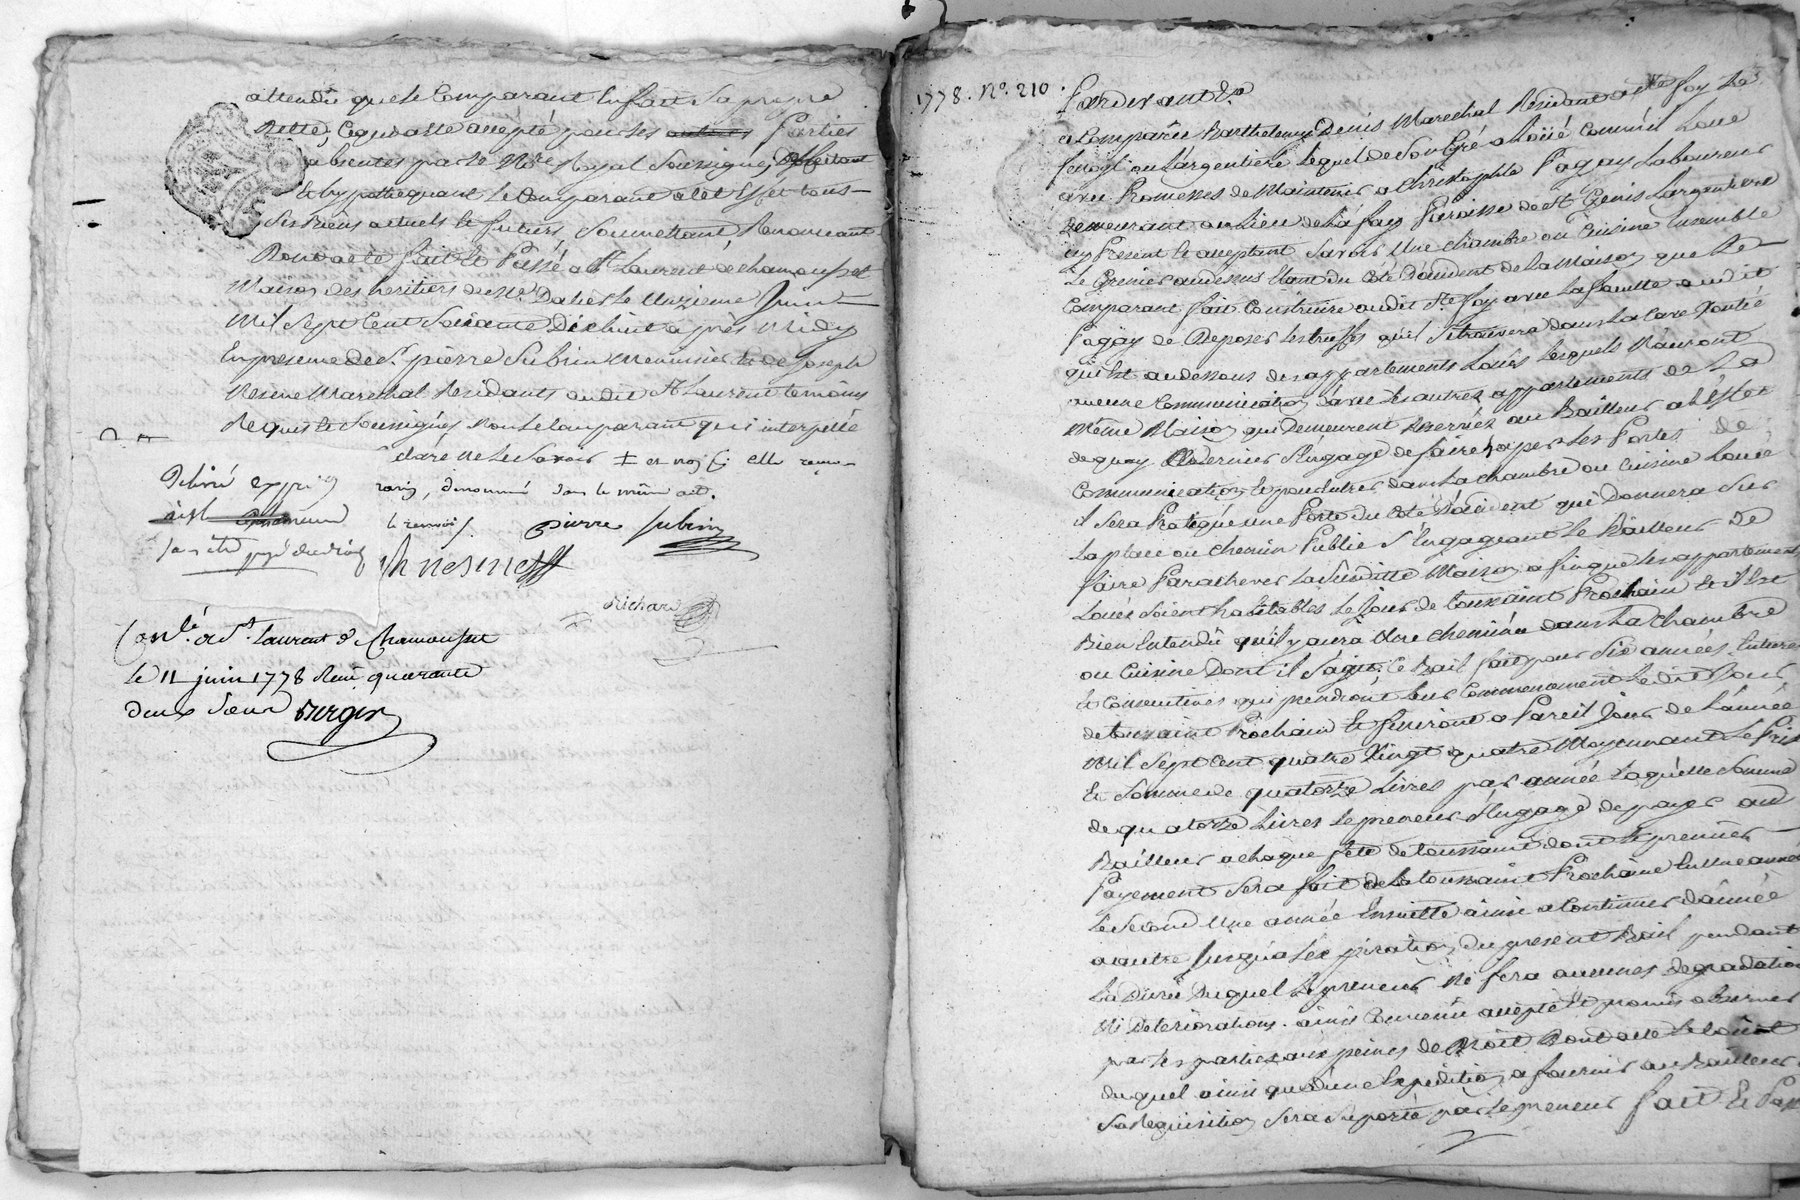 attendu que le Comparant en fait sa propre
dette, ce qui a été accepté pour les autres parties
absentes par le Nore Royal Soussigné, affectant
et hypothequant le Comparant a cet effet tous
ses Biens actuels et futurs soumettant Renonceant
Dont acte fait et Passé a St Laurent de chamousset
Maison des heritiers de Me Dalier le Unzieme Juin
Mil Sept Cent Soixante Dix huit après Midy
En presence de Sr pierre Subrin Menuisier et de Joseph
Mesme Marechal Residants audit St Laurent temoins
Requis et Soussignés non le Comparant qui interpellé
a déclaré ne le Savoir
dans le même act.
le renvoi
pierre subrin
Delivré
Jh mesme
Richard
Con.lé à St. laurent de Chamousset
le 11 juin 1778 Reçu quarante
deux sous
1778. No. 210.
Pardevant &a
a Comparu Barthelemy Denis Marechal Residant a Ste foy
lequel de Son gré a Loüé Comme il Loue
avec Promesses de Maintenir a Christophle Fagay Laboureur
Demeurant au Lieu de La fay Paroisse de St Genis Largentiere
cy Present et acceptant Savoir Une chambre ou Cuisine Ensemble
Le Grenier au dessus Etant du Coté D'audent de La Maison que Le
Comparant fait Construire audit Ste foy avec La faculté audit
Fagay de Deposer les truffes qu'il dans La Cave Voutée
qui Est au dessous des appartements Loués Lesquels N'auront
aucune Communication avec les autres appartements de La
Même Maison qui Demeurent Reservés au Bailleur a L'Effet
de quoy Ce dernier S'Engage de faire les Portes de
Communication dans La chambre ou Cuisine Louée
il Sera Pratiqué une Porte du Coté qui Donnera Sur
La place ou chemin Public S'Engageant Le Bailleur De
faire Parachever La Susditte Maison a fin que les appartements
Loués Soient habitables Le Jour de toussaint Prochain et il Est
Bien Entendu qu'il y aura Une cheminée dans La chambre
ou Cuisine Dont il S'agit, Ce Bail fait pour Six années Entieres
et Consecutives qui prendront leur Commencement Ledit Jour
de toussaint Prochain et finiront a Pareil Jour de L'année
Mil Sept Cent quatre Vingt quatre Moyennant Le Prix
et Somme de quatorze Livres par année Laquelle Somme
de quatorze Livres le preneur S'Engage de payer au
Bailleur a chaque fête de toussaint dont le premier
Payement Sera fait de La toussaint Prochaine En Une année
Le Second Une année Ensuitte ainsi a Continuer D'année
a autre Jusqu'a L'expiration du present Bail pendant
La Durée Duquel Le preneur Ne fera aucunes degradations
Ni Deteriorations. ainsi Convenu accepté et promis observer
par les parties aux peines de Droit Dont acte Le Cout
duquel ainsi que d'une Expedition a fournir au Bailleur a
Sa Requisition Sera Suporté par le preneur fait et Passé